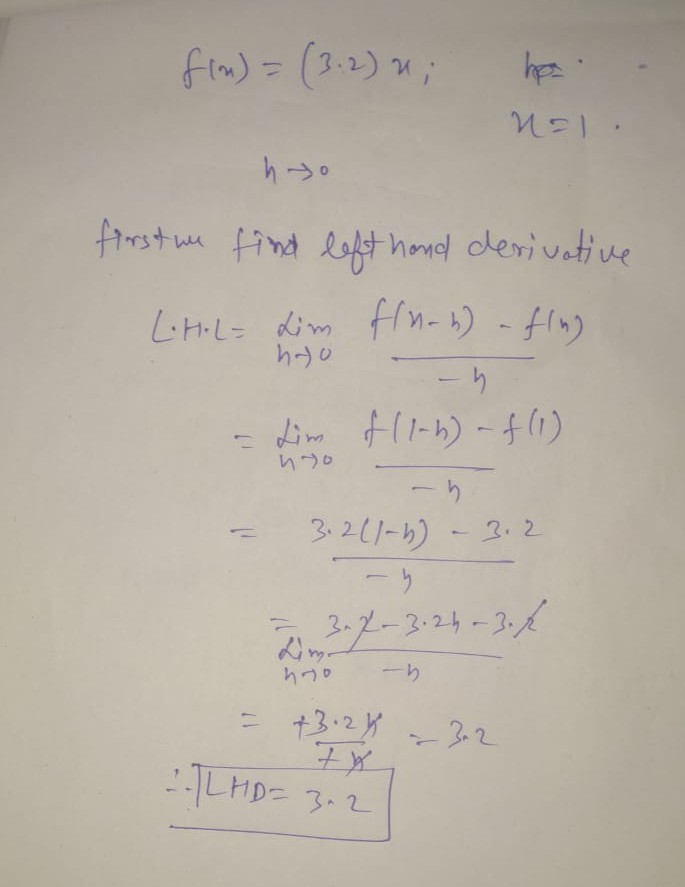 f(x) = (3.2) x ;
x = 1 .
h → 0
first we find left hand derivative
L.H.L = Lim h→0 f(x-h) - f(x) / -h
= Lim h→0 f(1-h) - f(1) / -h
= 3.2(1-h) - 3.2 / -h
= Lim h→0 3.2 - 3.2h - 3.2 / -h
= +3.2h / +h = 3.2
∴ LHD = 3.2